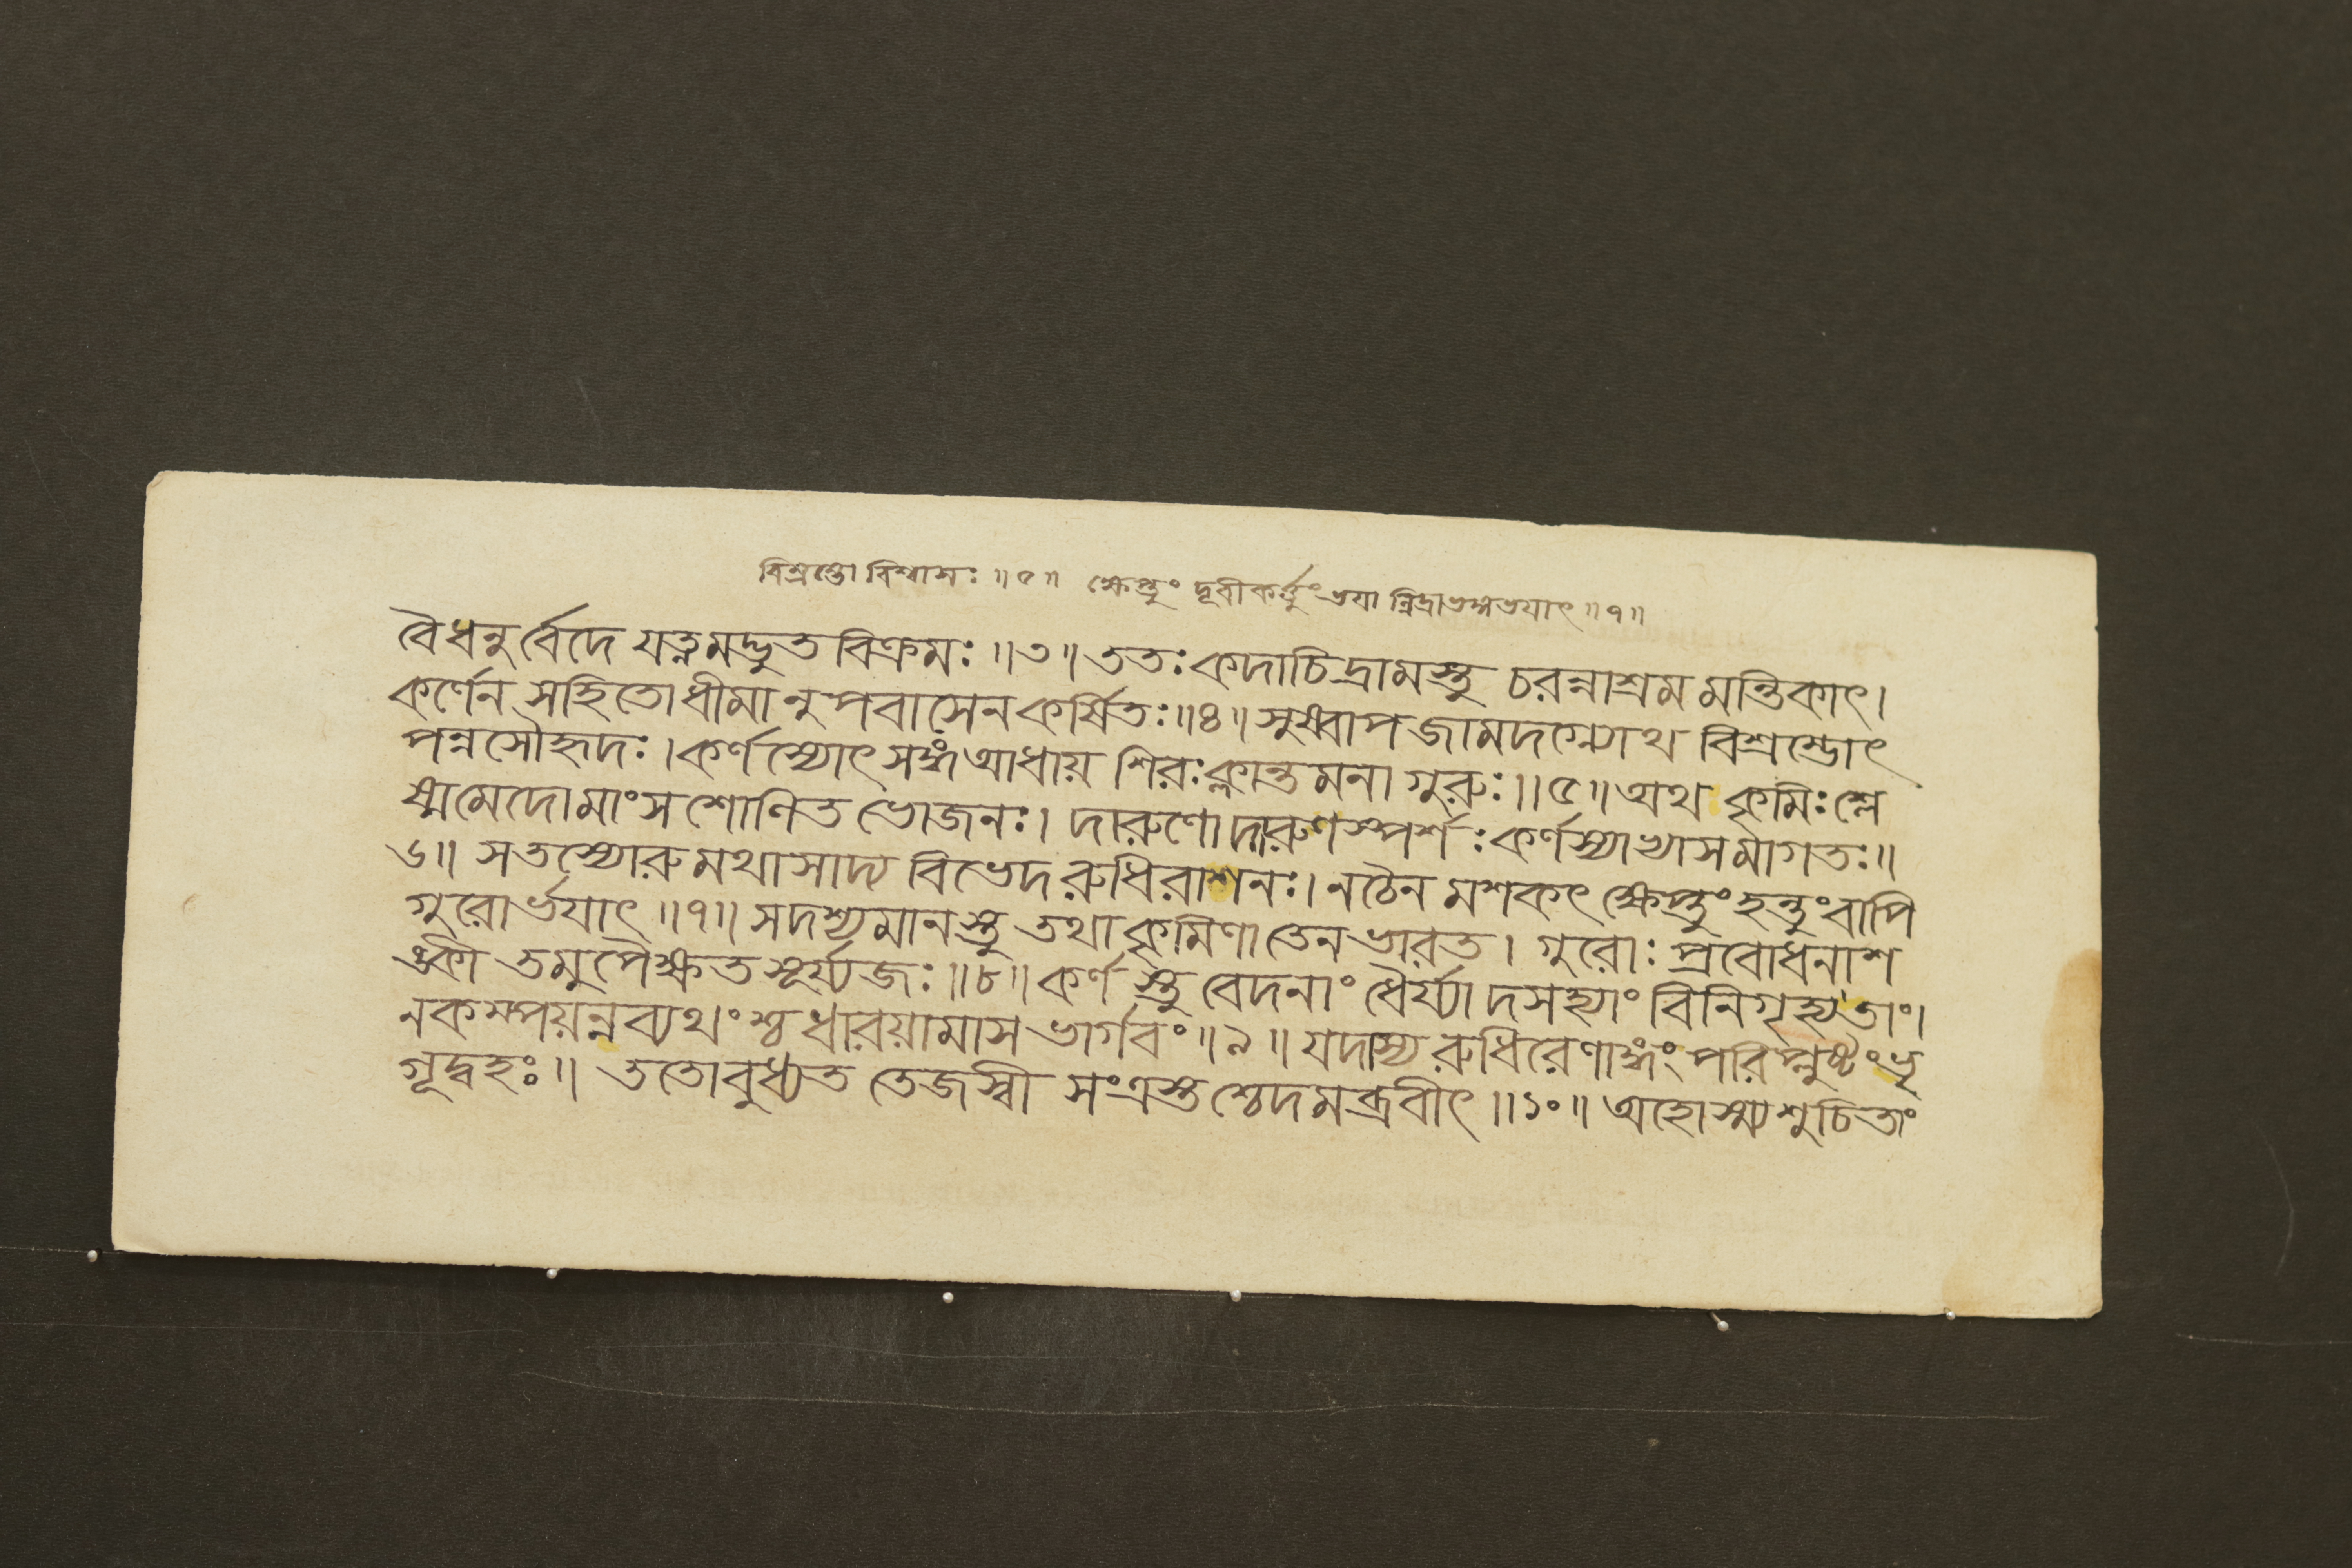 বিশ্রম্ভো বিশ্বাসঃ ॥৫॥ ক্ষেপ্তুং দূরীকর্ত্তুং ভয়া ন্নিদ্রাভঙ্গভয়াৎ ॥৭॥
বৈধনুর্বেদে যত্নমদ্ভুত বিক্রমঃ ॥৩॥ ততঃ কদাচিদ্রামস্তু চরন্নাশ্রম মন্তিকাৎ।
কর্ণেন সহিতো ধীমানুপবাসেন কর্ষিতঃ ॥৪॥ সুষ্বাপ জামদগ্ন্যোথ বিশ্রম্ভোৎ
পন্নসৌহৃদঃ। কর্ণস্যোৎসঙ্গং আধায় শিরঃ ক্লান্তমনা গুরুঃ ॥৫॥ অথ কৃমিঃ শ্লে
ষ্মমেদোমাংসশোণিত ভোজনঃ। দারুণো দারুণস্পর্শঃ কর্ণস্যাখ্যাসমাগতঃ॥
৬॥ সতস্যোরুমথাসাদ্য বিভেদ রুধিরাশনঃ। নচৈনমশকৎ ক্ষেপ্তুং হন্তুং বাপি
গুরোর্ভয়াৎ ॥৭॥ সদশ্যমানস্তু তথা কৃমিণা তেন ভারত। গুরোঃ প্রবোধনাশ
ঙ্কী তমুপৈক্ষত সূর্য্যজঃ ॥৮॥ কর্ণস্তু বেদনাং ধৈর্য্যাদসহ্যাং বিনিগৃহ্যতাং।
নকম্পয়ন্নব্যথংশ্চ ধারয়ামাস ভার্গবং ॥৯॥ যদাস্য রুধিরেণাঙ্গং পরিপ্লুষ্টং ভৃ
গূদ্বহঃ॥ ততোবুধ্যত তেজস্বী সংত্রস্তশ্চেদমব্রবীৎ ॥১০॥ অহোস্ম্যশুচিতাং